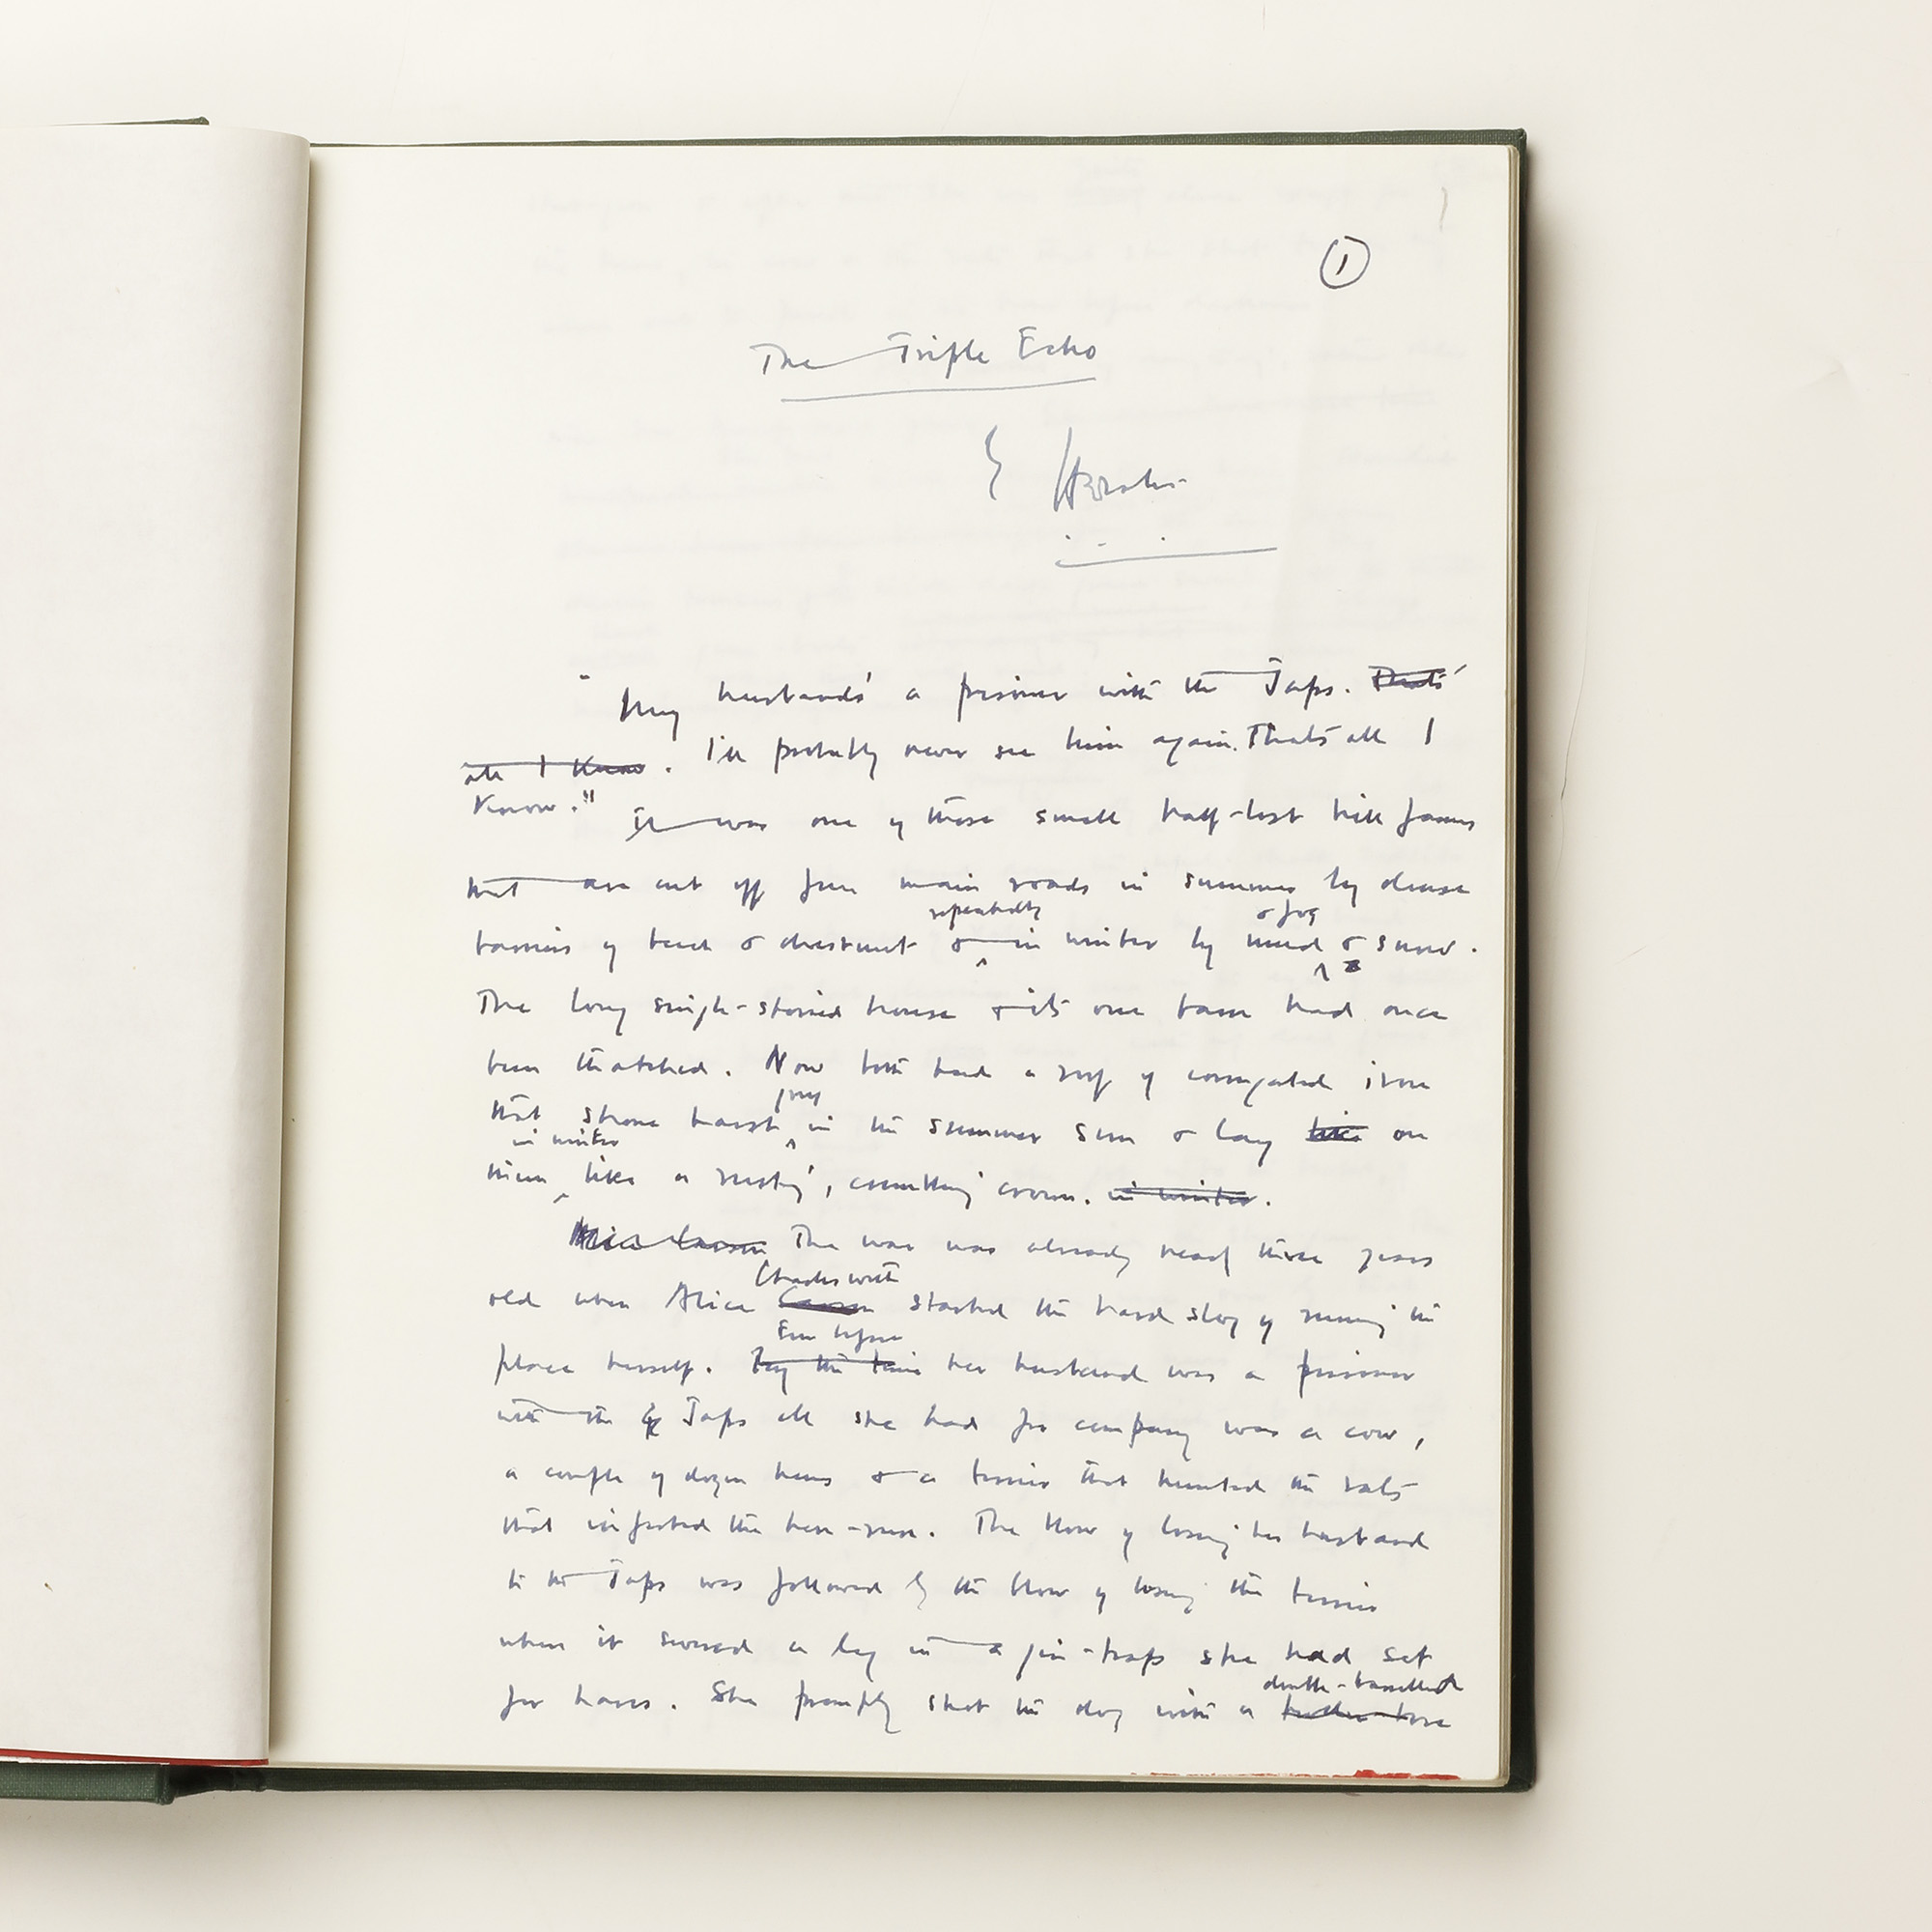 1
The Triple Echo
"My husband's a prisoner with the Japs. That's
all I know. I'll probably never see him again. That's all I
know."
It was one of those small half-lost hill farms
that are cut off from main roads in summer by dense
repeatedly & fog
barriers of beech & chestnut & in winter by mud & snow.
The long single-storied house & its one barn had once
been thatched. Now both had a roof of corrugated iron
grey
that shone harsh in the summer sun & lay like on
in winter
them like a rusting, crumbling crown. in winter.
Alice Carson The war was already nearly three years
Charlesworth
old when Alice Carson started the hard slog of running the
Even before
place herself. By the time her husband was a prisoner
with the Japs all she had for company was a cow,
a couple of dozen hens & a terrier that hunted the rats
that infested the hen-run. The blow of losing her husband
to the Japs was followed by the blow of losing the terrier
when it severed a leg in a gin-trap she had set
double-barrelled
for hares. She promptly shot the dog with a bore